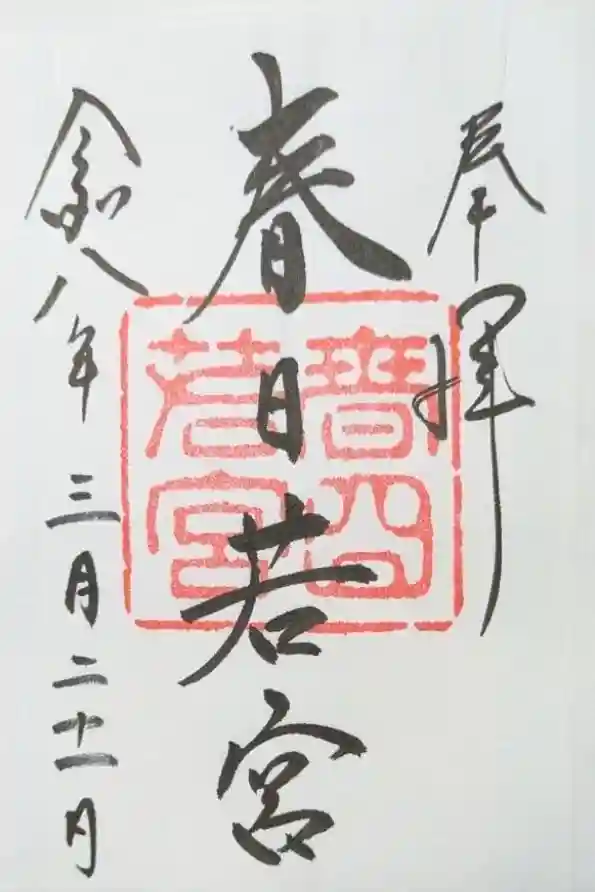 奉拝
春日若宮
令和八年三月二十一日
春日
若宮